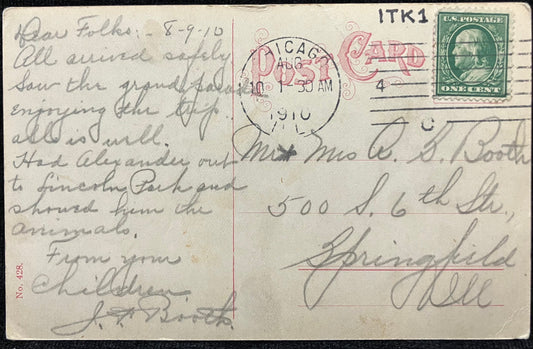 Dear Folks:- 8-9-10
All arrived safely
Saw the grand parade
enjoying the trip
all is well.
Had Alexander out
to Lincoln Park and
showed him the
animals.
From your
Children
J. F. Booth.
No. 428.
ITK1
POST CARD
CHICAGO
AUG
10 1-30 AM
1910
ILL.
4
C
U.S. POSTAGE
ONE CENT
Mr + Mrs A. G. Booth
500 S. 6th Str,
Springfield
Ill